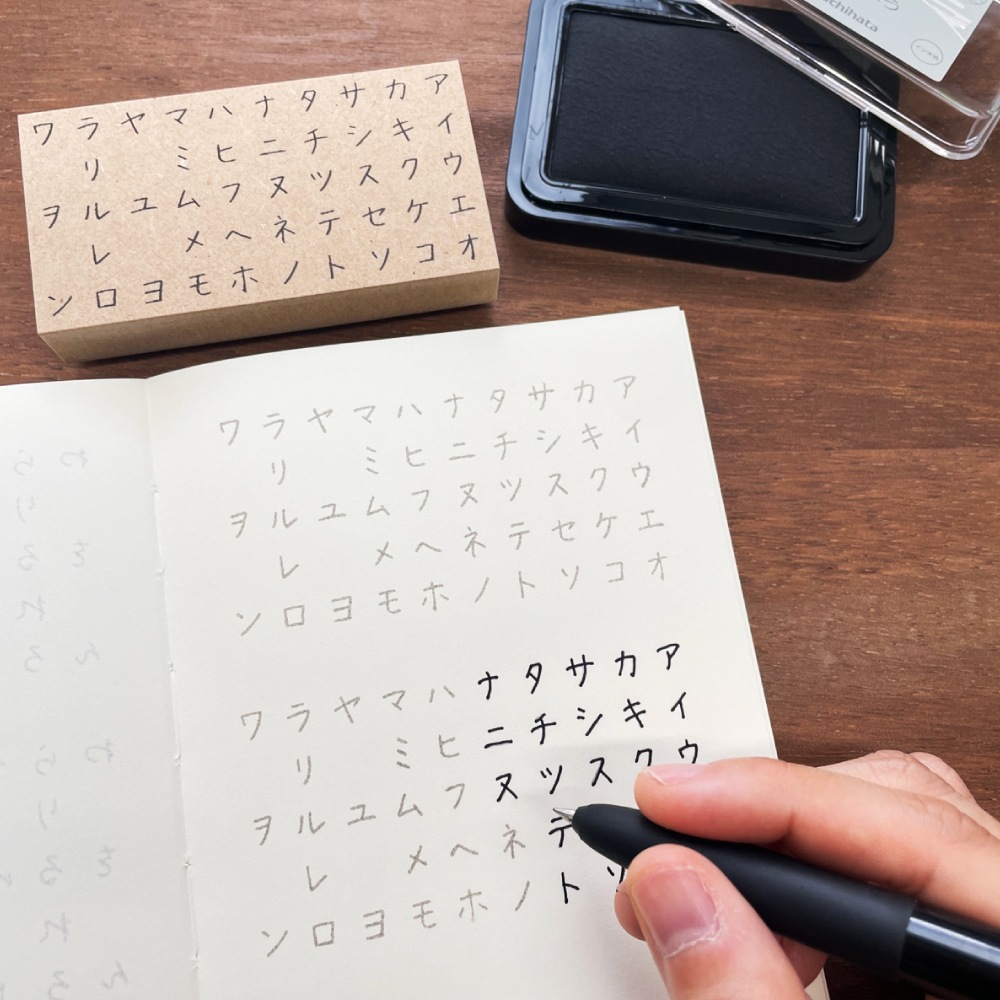 アイウエオ
カキクケコ
サシスセソ
タチツテト
ナニヌネノ
ハヒフヘホ
マミムメモ
ヤユヨ
ラリルレロ
ワヲン
アイウエオ
カキクケコ
サシスセソ
タチツテト
ナニヌネノ
ハヒフヘホ
マミムメモ
ヤユヨ
ラリルレロ
ワヲン
アイウ
カキク
サシスソ
タチツテト
ナニヌネノ
ハヒフヘホ
マミムメモ
ヤユヨ
ラリルレロ
ワヲン